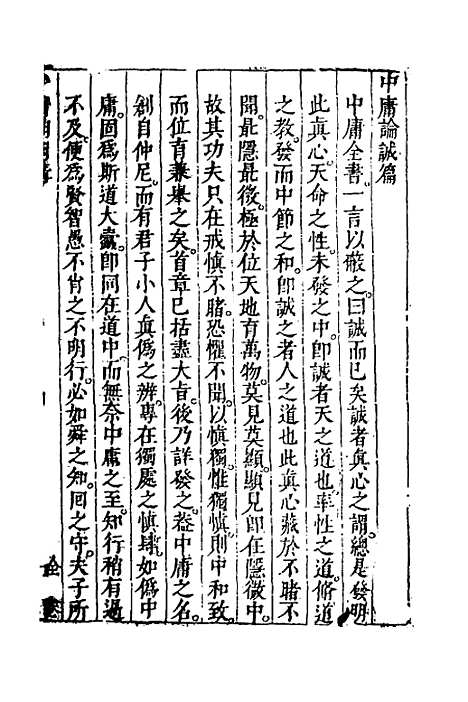 中庸論誠篇
中庸全書一言以蔽之曰誠而已矣誠者眞心之謂總是發明
此眞心天命之性未發之中卽誠者天之道也率性之道脩道
之教發而中節之和卽誠之者人之道也此眞心藏於不睹不
聞最隱最微極於位天地育萬物莫見莫顯顯見卽在隱微中
故其功夫只在戒慎不睹恐懼不聞以慎獨惟獨慎則中和致
而位育兼舉之矣首章已括盡大旨後乃詳發之葢中庸之名
創自仲尼而有君子小人眞僞之辨專在獨處之慎肆如僞中
庸固爲斯道大蠹卽同在道中而無奈中庸之至知行稍有過
不及便爲賢智愚不肖之不明行必如舜之知回之守夫子所